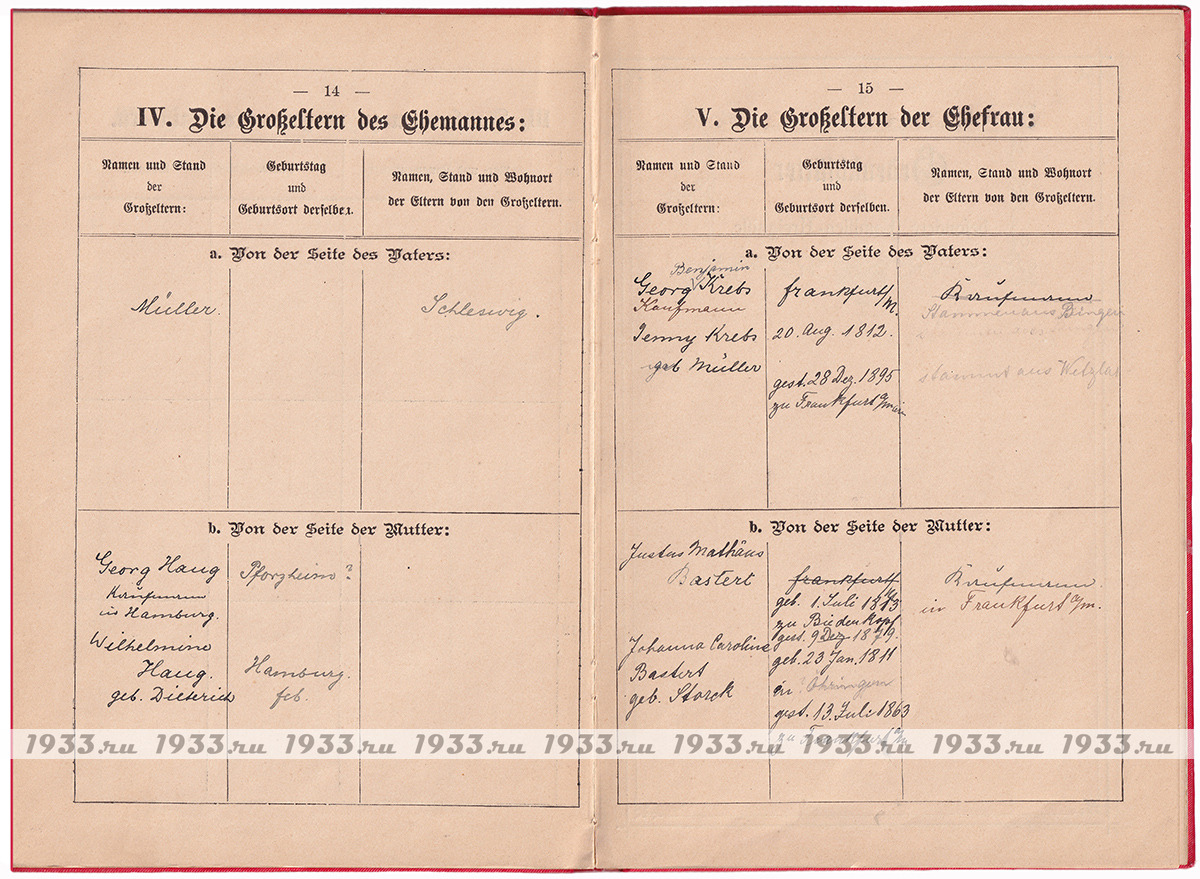 — 14 —
IV. Die Großeltern des Ehemannes:
Namen und Stand
der
Großeltern:
Geburtstag
und
Geburtsort derselben.
Namen, Stand und Wohnort
der Eltern von den Großeltern.
a. Von der Seite des Vaters:
Müller.
Schleswig.
b. Von der Seite der Mutter:
Georg Haug
Kaufmann
in Hamburg.
Pforzheim?
Wilhelmine
Haug.
geb. Dieterich
Hamburg.
feb.
— 15 —
V. Die Großeltern der Ehefrau:
Namen und Stand
der
Großeltern:
Geburtstag
und
Geburtsort derselben.
Namen, Stand und Wohnort
der Eltern von den Großeltern.
a. Von der Seite des Vaters:
Benjamin
Georg Krebs
Kaufmann
Jenny Krebs
geb Müller
Frankfurt
/M.
20. Aug. 1812.
gest. 28 Dez. 1895
zu Frankfurt a/main
Kaufmann
Stammen aus Bingen
stammt aus Wetzlar
b. Von der Seite der Mutter:
Justus Mathäus
Bastert
Frankfurt
geb. 1. Juli 1813
zu Biedenkopf
gest. 9 Dez 1879.
Kaufmann
in Frankfurt a/m.
Johanna Caroline
Bastert
geb. Storck
geb. 23 Jan. 1811
in Öhringen
gest. 13. Juli 1863
zu Frankfurt a/m
1933.ru 1933.ru 1933.ru 1933.ru 1933.ru 1933.ru 1933.ru 1933.ru 1933.ru